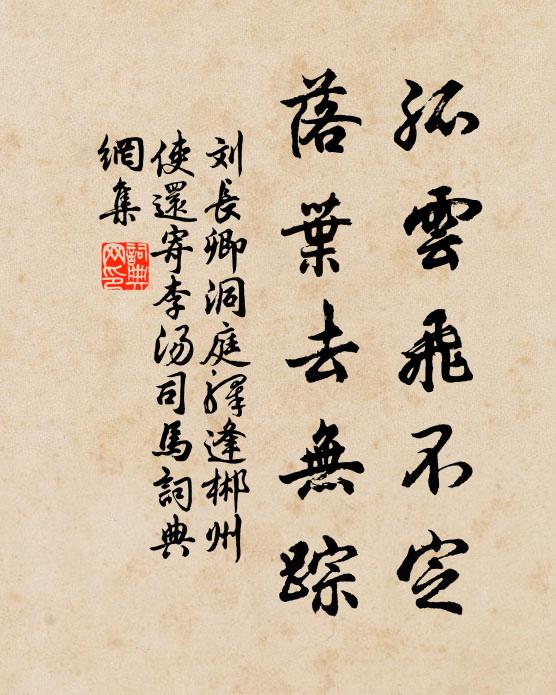 孤雲飛不定
落葉去無踪
刘長卿洞庭驛逢郴州
使還寄李汤司馬詞典
網集
詞典網印